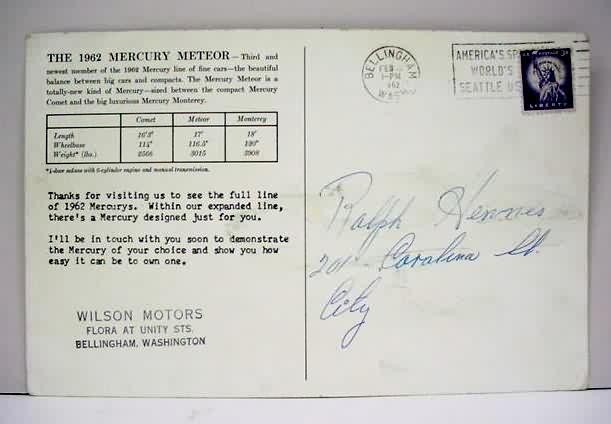 THE 1962 MERCURY METEOR—Third and
newest member of the 1962 Mercury line of fine cars—the beautiful
balance between big cars and compacts. The Mercury Meteor is a
totally-new kind of Mercury—sized between the compact Mercury
Comet and the big luxurious Mercury Monterey.
Comet Meteor Monterey
Length 16'3" 17' 18'
Wheelbase 114" 116.5" 120"
Weight* (lbs.) 2566 3015 3908
sedans with 6-cylinder engine and manual transmission.
Thanks for visiting us to see the full line
of 1962 Mercurys. Within our expanded line,
there's a Mercury designed just for you.
I'll be in touch with you soon to demonstrate
the Mercury of your choice and show you how
easy it can be to own one.
WILSON MOTORS
FLORA AT UNITY STS.
BELLINGHAM, WASHINGTON
BELLINGHAM
FEB
PM
1962
WASH
AMERICA'S
WORLD'S
SEATTLE
U.S. POSTAGE 3¢
LIBERTY
Ralph Hennes
201 Carolina St.
City